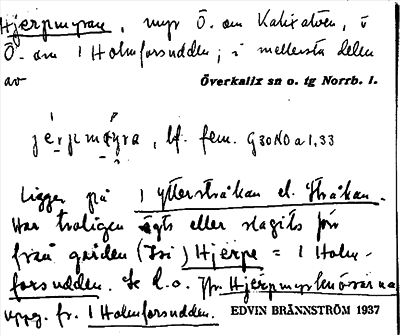 Hjerpmyran, myr Ö. om Kalixälven, i
Ö. om 1 Holmforsudden; i mellersta delen
av Överkalix sn o. tg Norrb. l.
bf. fem. G30NO a 1,33
Ligger på 1 ytterstråkan el. Stråkan.
Har troligen ägts eller slagits för
från gården (Isi) Hjerpe = 1 Holm-
forsudden. Se d.o. Jfr Hjerpmyrknösarna
uppg. fr. 1 Holmforsudden. EDVIN BRÄNNSTRÖM 1937